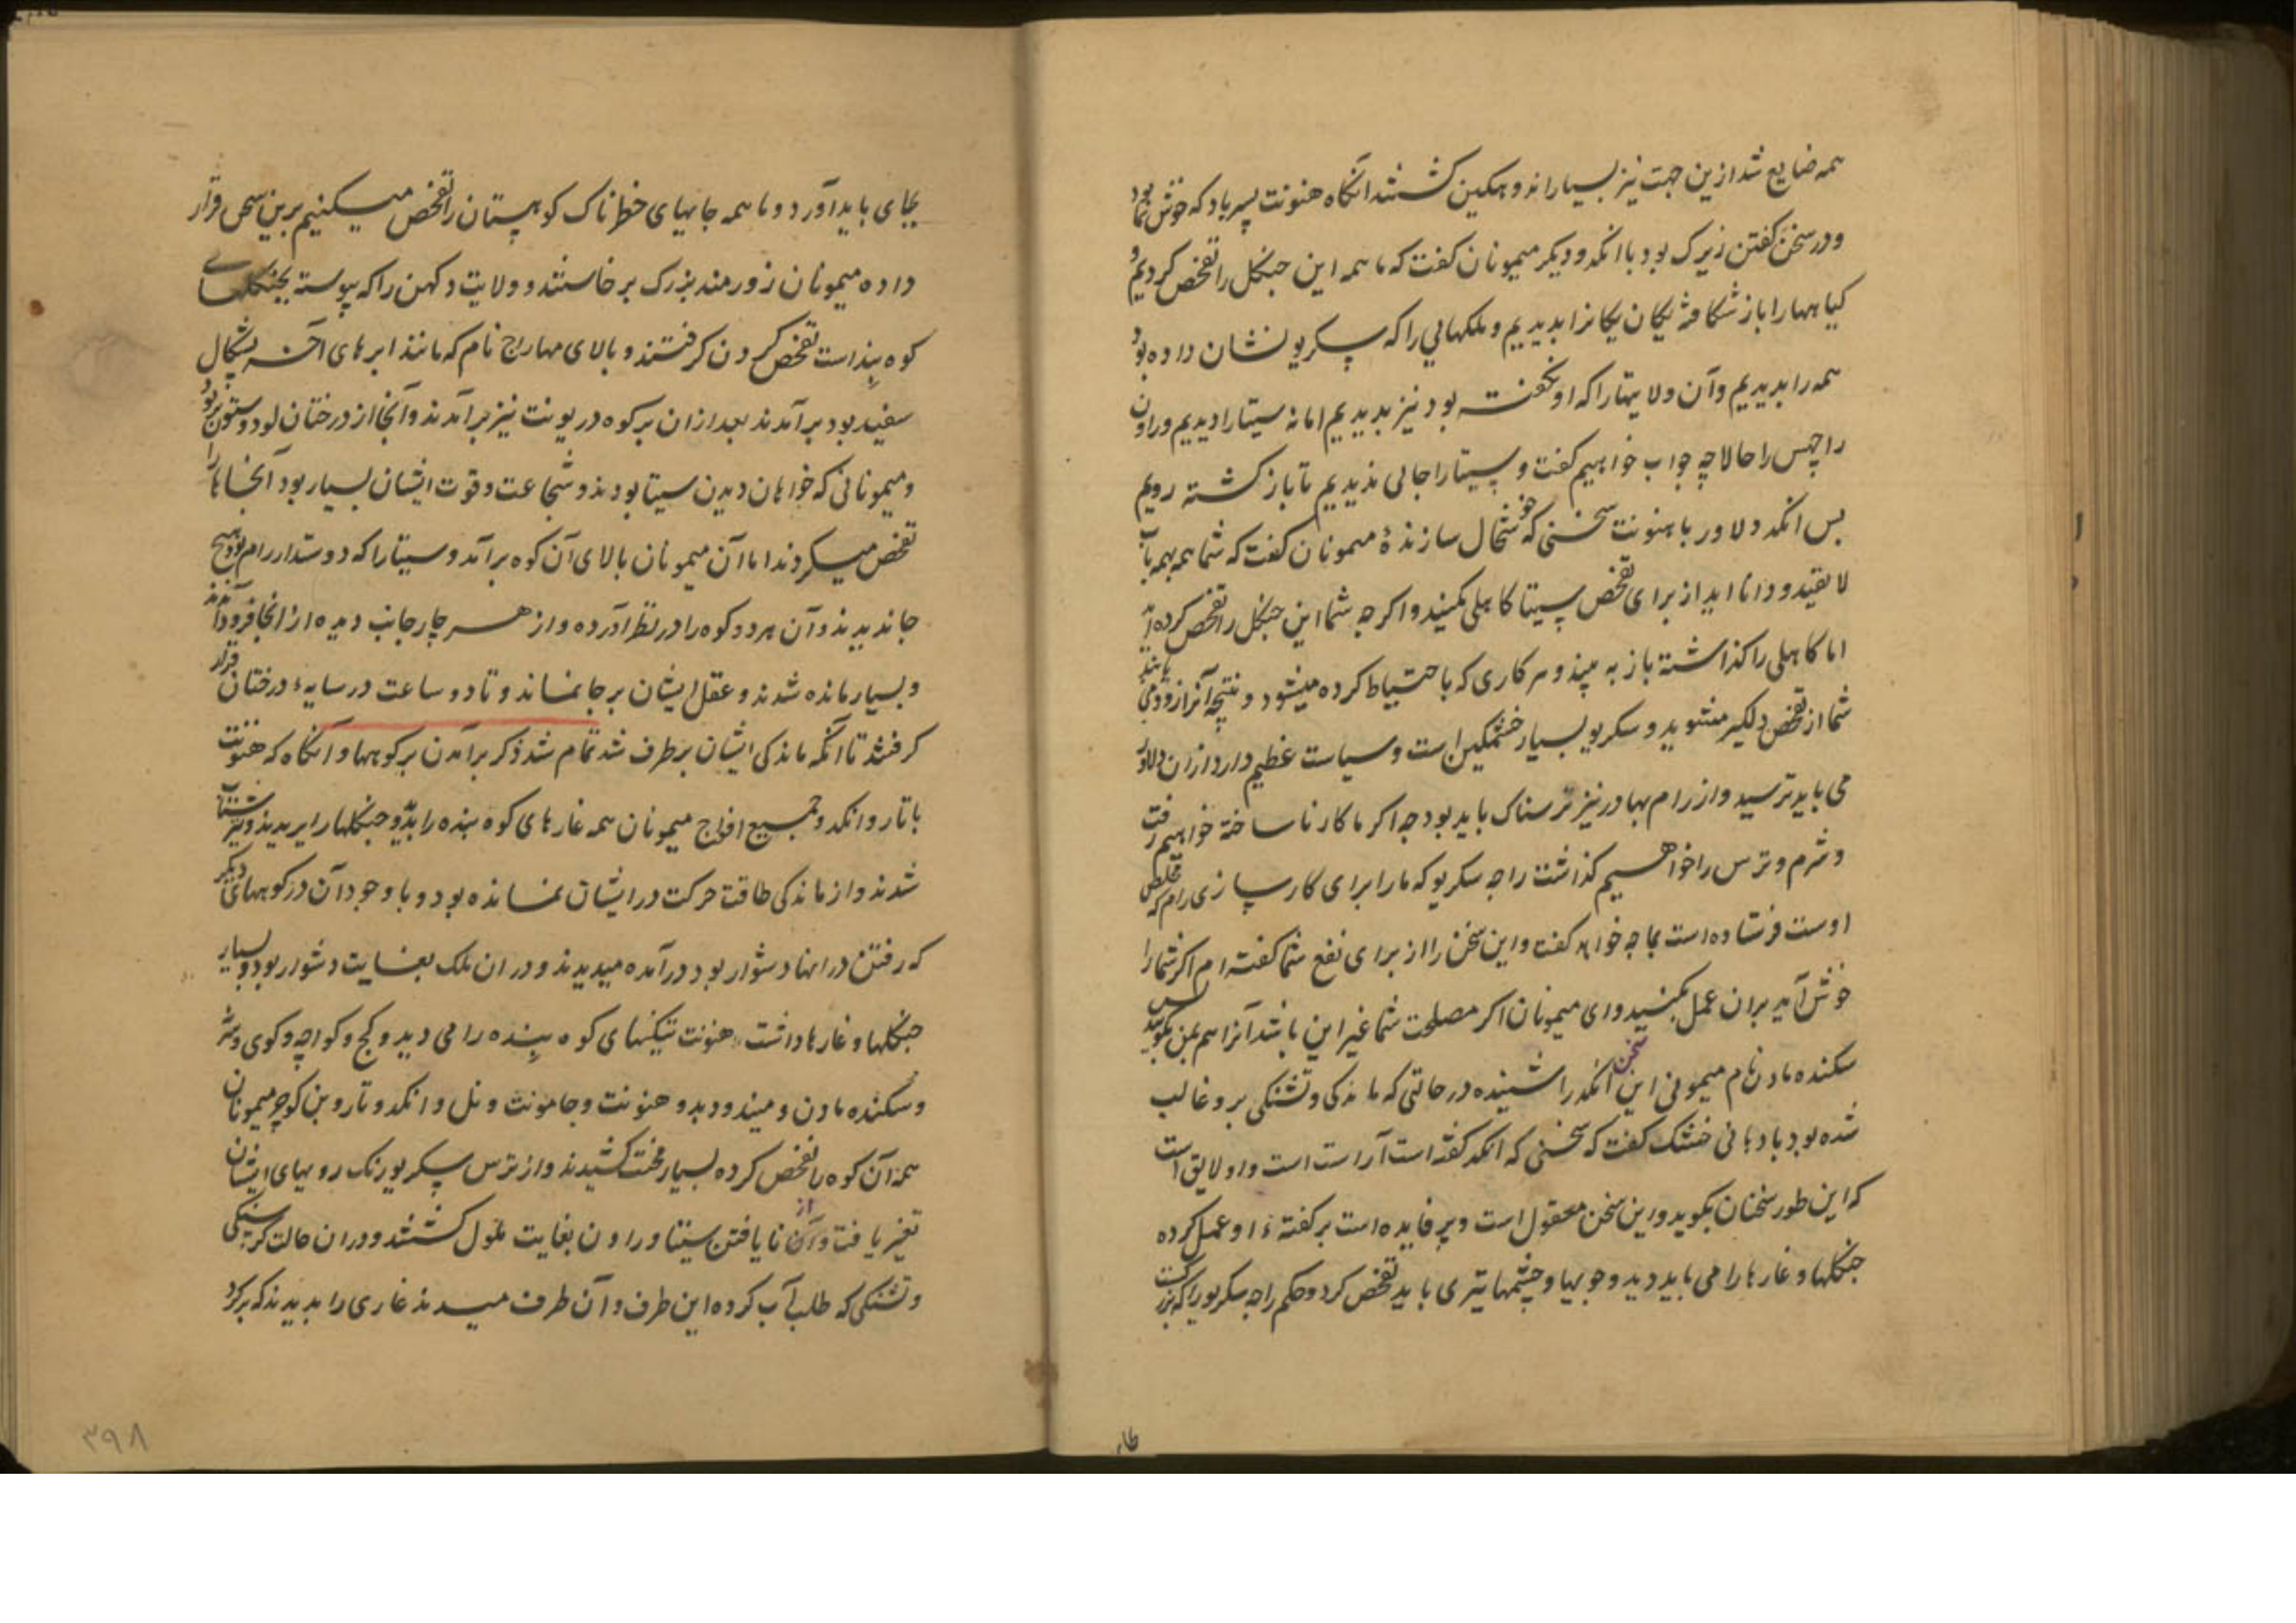 همه ضایع شد ازین جهت نیز بسیار اندوهکین کشتند انکاه هنونت پسر باد که خوش نما بود
و در سخن کفتن زیرک بود با انکد و دیکر میمونان کفت که ما همه این جنکل را تفحص کردیم و
کیاهها را باز شکافته یکان یکانرا بدیدیم و ملکهایی را که سکریو نشان داده بود
همه را بدیدیم و آن ولایتها را که او نکفته بود نیز بدیدیم اما نه سیتا را دیدیم و راون
راچهس را حالا چه جواب خواهیم کفت و سیتا را جائی ندیدیم تا باز کشته رویم
پس انکد دلاور با هنونت سخنی که خوشحال سازندهٔ میمونان کفت که شما همه بهمه باب
لایقید و دانا اید از برای تفحص سیتا کاهلی مکنید و اکرچه شما این جنکل را تفحص کرده اید
اما کاهلی را کذاشته باز به بینید و هر کاری که با حتیاط کرده میشود و نتیجه آنرا زود می یابند
شما از تفحص دلکیر مشوید و سکریو بسیار خشمکین است و سیاست عظیم دارد ازان دلاور
می باید ترسید و از رام بهادر نیز ترسناک باید بود چه اکر ما کار نا ساخته خواهیم رفت
و شرم و ترس را خواهیم کذاشت راجه سکریو که ما را برای کار سازی رام که مخلص
اوست فرستاده است بما چه خواهد کفت و این سخن را از برای نفع شما کفته ام اکر شما را
خوش آید بران عمل بکنید و ای میمونان اکر مصلحت شما غیر این باشد آنرا هم بمن بکویید پس
سکنده مادن نام میمونی این سخن انکد را شنیده در حالتی که ماندکی و تشنکی برو غالب
شده بود با دهانی خشک کفت که سخنی که انکد کفته است آراست است و او لایق است
که این طور سخنان بکوید و این سخن معقول است و پر فایده است بر کفتهٔ او عمل کرده
جنکلها و غارها را می باید دید و جویها و چشمها نیز می باید تفحص کرد و حکم راجه سکریو را که بزرک است
بجای باید آورد و ما همه جایهای خطرناک کوهستان را تفحص میکنیم برین سخن قرار
داده میمونان زورمند بزرک برخاستند و ولایت دکهن را که پیوسته بجنکلهای
کوه بنداست تفحص کردن کرفتند و بالای مهارج نام که مانند ابرهای آخر بشکال
سفید بود برآمدند بعد ازان بر کوه در یونت نیز برآمدند و آنجا از درختان لود و ستون پر بود
و میمونانی که خواهان دیدن سیتا بودند و شجاعت و قوت ایشان بسیار بود آنجاها را
تفحص میکردند اما آن میمونان بالای آن کوه برآمد و سیتا را که دوستدار رام بود هیچ
جا ندیدند و آن هر دو کوه را در نظر آورده و از هر چار جانب دیده از انجا فرود آمدند
و بسیار مانده شدند و عقل ایشان بر جا نماند و تا دو ساعت در سایهٔ درختان قرار
کرفتند تا آنکه ماندکی ایشان برطرف شد تمام شد ذکر برآمدن بر کوهها و آنکاه که هنونت
با تار و انکد و جمیع افواج میمونان همه غارهای کوه بنده را بدید و جنکلها را بدیدند و نیز
شدند و از ماندکی طاقت حرکت در ایشان نمانده بود و با وجود آن در کوههای دیکر
که رفتن در انها دشوار بود درآمده میدیدند و در ان ملک بغایت دشوار بود و بسیار
جنکلها و غارها داشت هنونت تیکنهای کوه بنده را می دید و کج و کواچه و کوی و سر
و سکنده مادن و میند و دبد و هنونت و جامونت و نل و انکد و تار و بن کوچر میمونان
همه آن کوه را تفحص کرده بسیار محنت کشیدند و از ترس سکریو رنک رویهای ایشان
تغیر یافت و از نا یافتن سیتا و راون بغایت ملول کشتند و دران حالت کرسنکی
و تشنکی که طلب آب کرده این طرف و آن طرف میدیدند غاری را بدیدند که بر کرد
۳۹۸